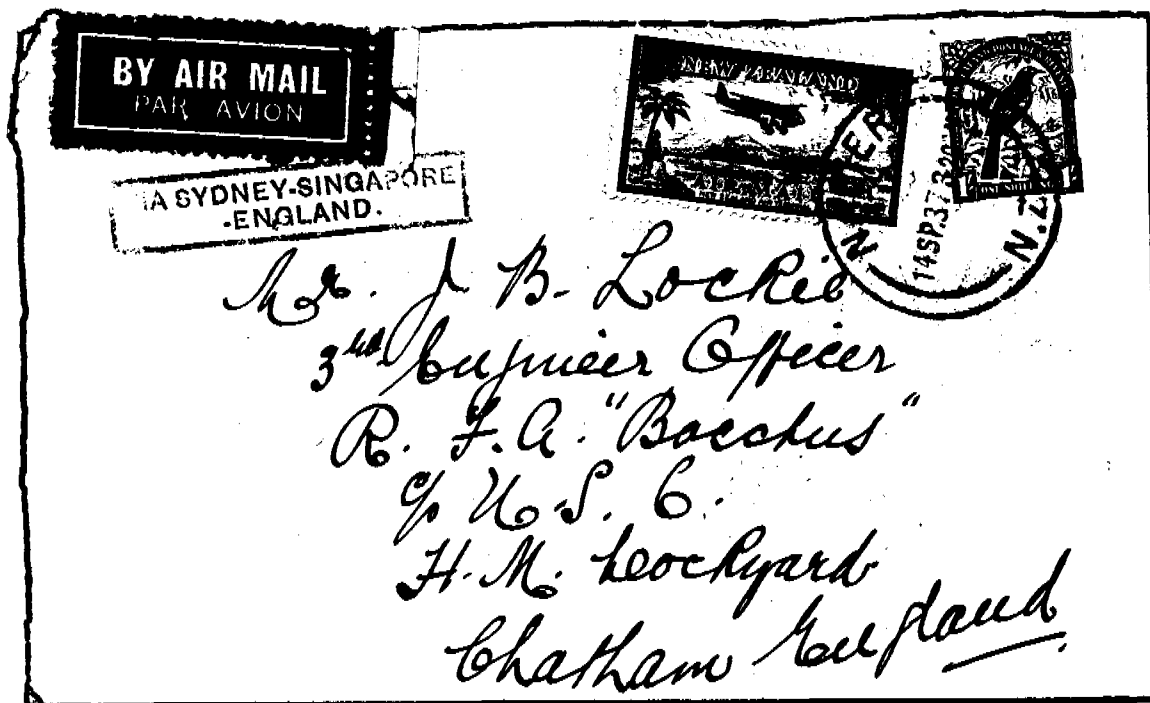 BY AIR MAIL
PAR AVION
IA SYDNEY-SINGAPORE
-ENGLAND.
NEW ZEALAND
AIR MAIL
ONE SHILLING
14SP.37 3.30
N.Z.
Mr. J B. Lockie
3rd Engineer Officer
R. F. A. "Bacchus"
c/o N. S. O.
H. M. Dockyard
Chatham England